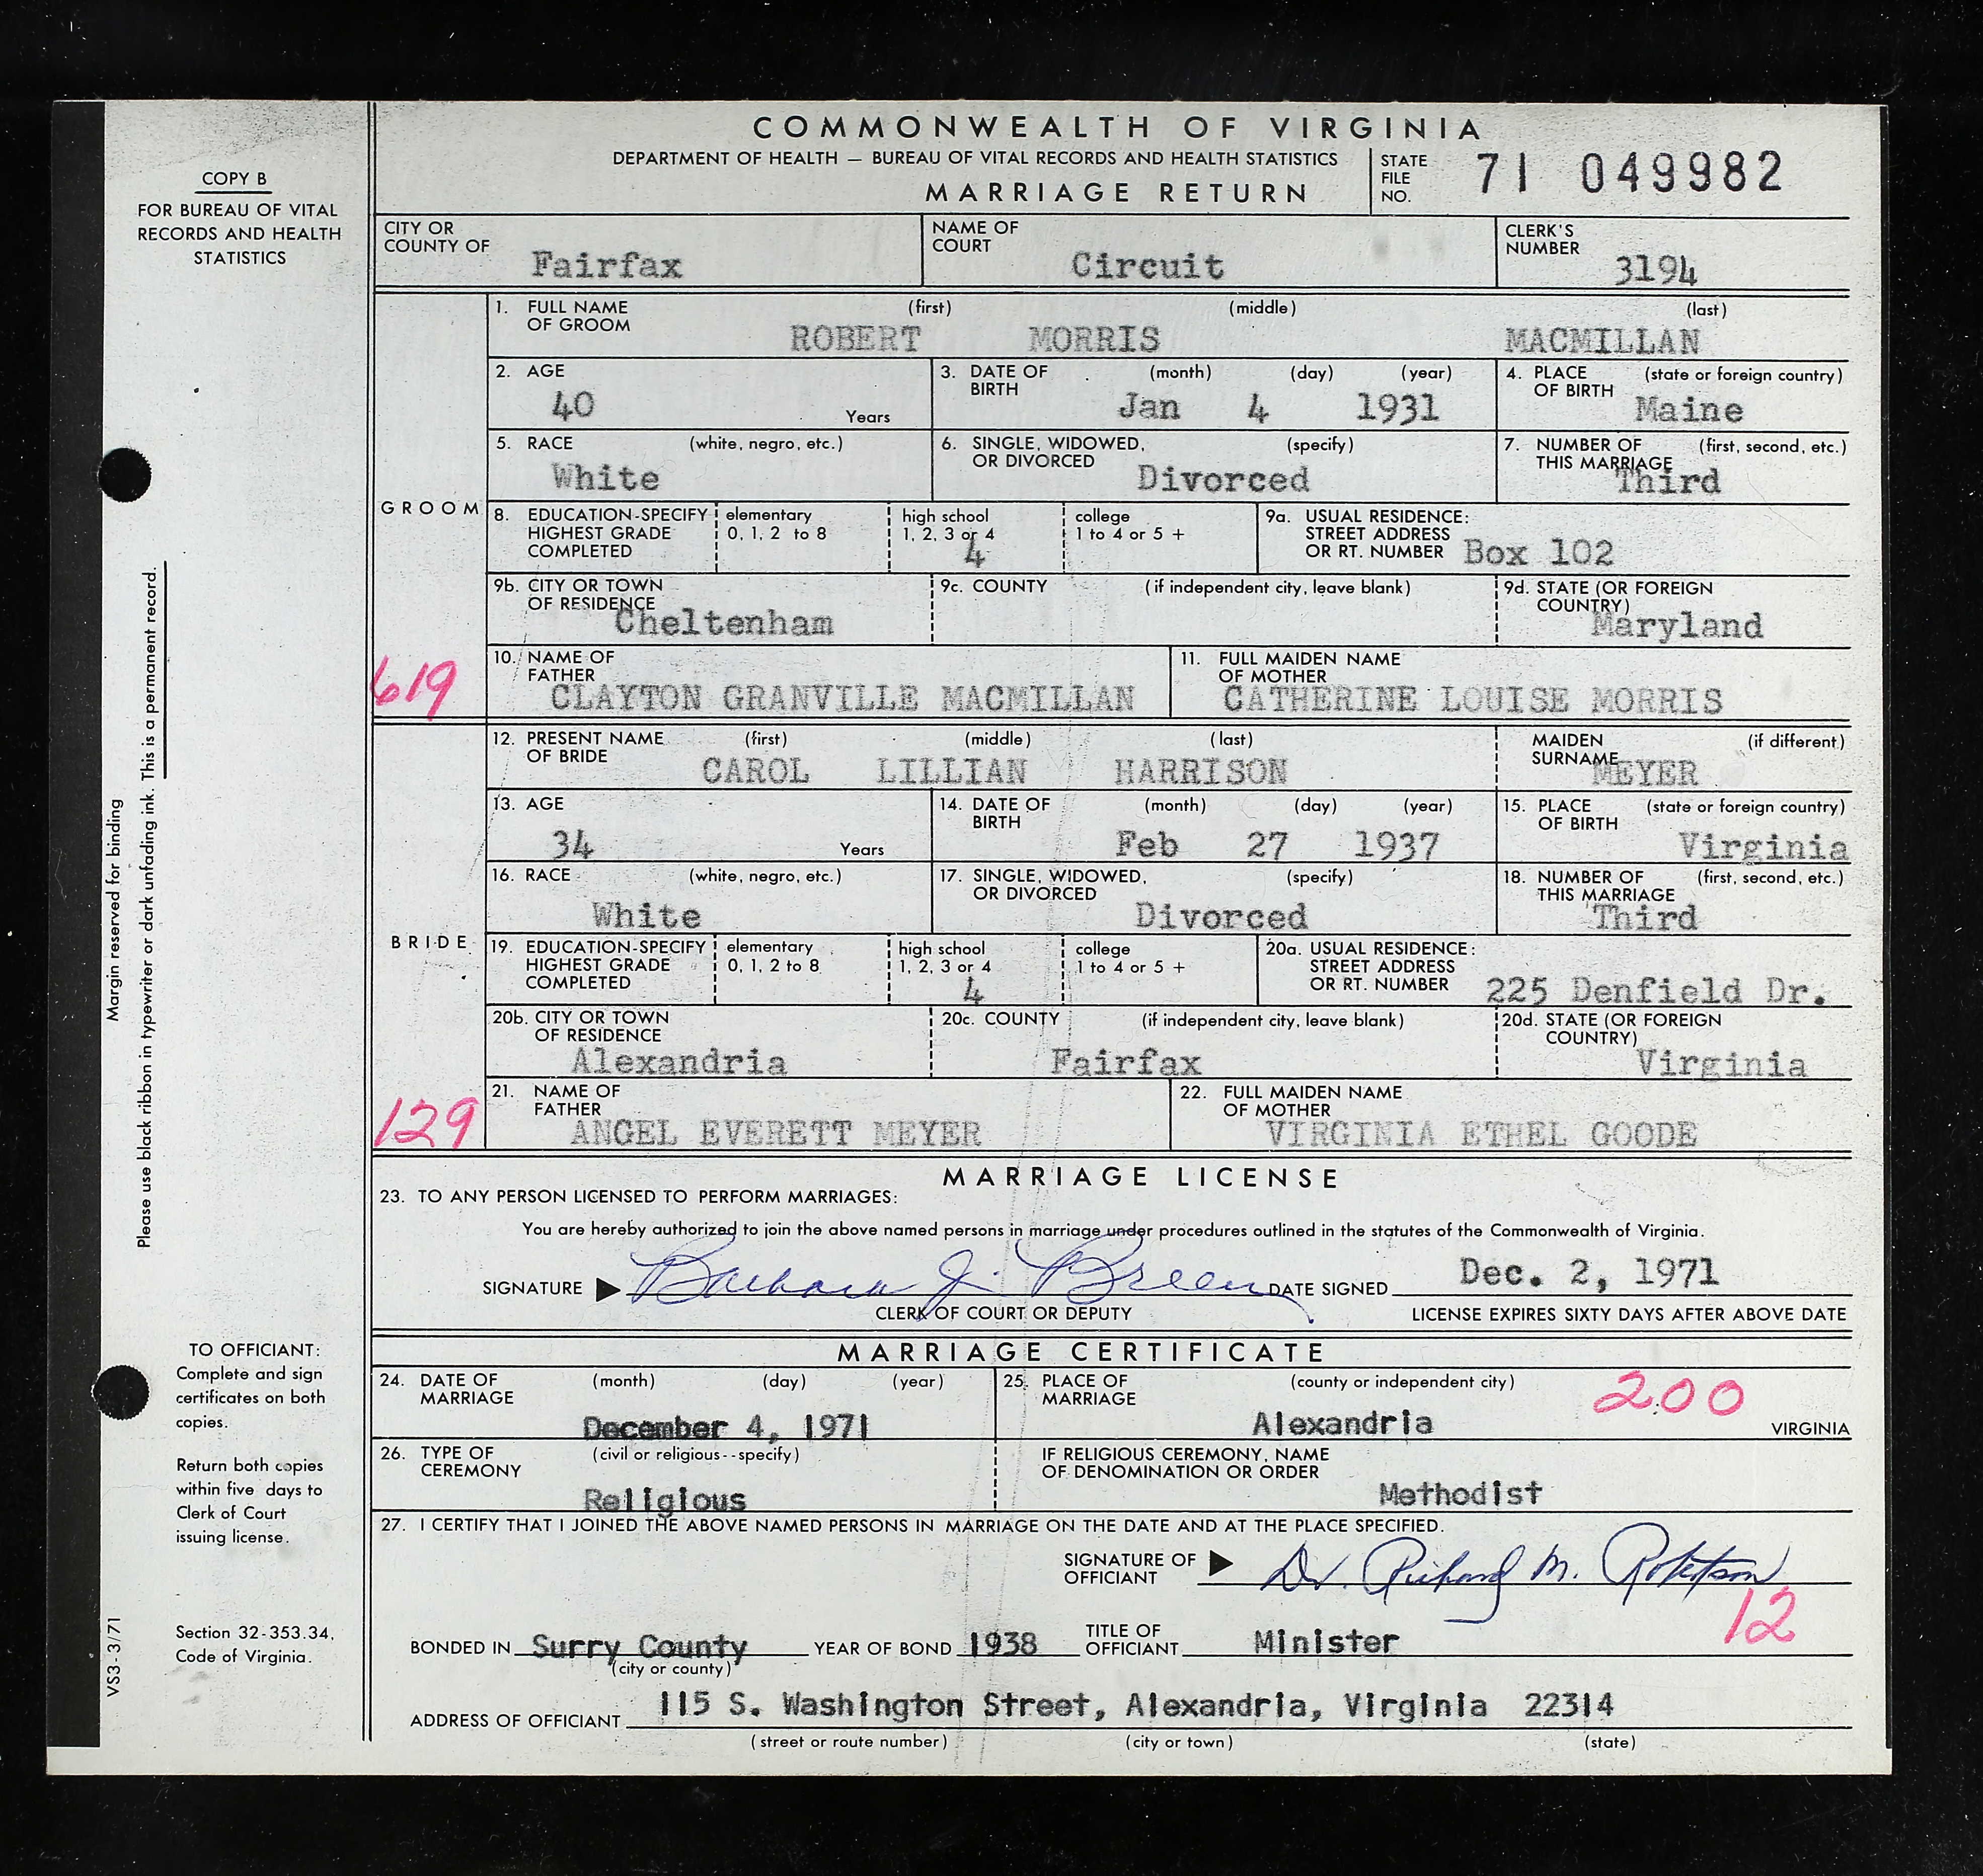 COMMONWEALTH OF VIRGINIA
DEPARTMENT OF HEALTH — BUREAU OF VITAL RECORDS AND HEALTH STATISTICS
MARRIAGE RETURN
STATE FILE NO. 71 049982
COPY B
FOR BUREAU OF VITAL
RECORDS AND HEALTH
STATISTICS
CITY OR COUNTY OF Fairfax
NAME OF COURT Circuit
CLERK'S NUMBER 3194
GROOM
1. FULL NAME OF GROOM (first) (middle) (last)
ROBERT MORRIS MACMILLAN
2. AGE 40 Years
3. DATE OF BIRTH (month) (day) (year) Jan 4 1931
4. PLACE OF BIRTH (state or foreign country) Maine
5. RACE (white, negro, etc.) White
6. SINGLE, WIDOWED, OR DIVORCED (specify) Divorced
7. NUMBER OF THIS MARRIAGE (first, second, etc.) Third
8. EDUCATION-SPECIFY HIGHEST GRADE COMPLETED
elementary 0, 1, 2 to 8
high school 1, 2, 3 or 4 4
college 1 to 4 or 5 +
9a. USUAL RESIDENCE: STREET ADDRESS OR RT. NUMBER Box 102
9b. CITY OR TOWN OF RESIDENCE Cheltenham
9c. COUNTY (if independent city, leave blank)
9d. STATE (OR FOREIGN COUNTRY) Maryland
619
10. NAME OF FATHER CLAYTON GRANVILLE MACMILLAN
11. FULL MAIDEN NAME OF MOTHER CATHERINE LOUISE MORRIS
BRIDE
12. PRESENT NAME OF BRIDE (first) (middle) (last)
CAROL LILLIAN HARRISON
MAIDEN SURNAME (if different) MEYER
13. AGE 34 Years
14. DATE OF BIRTH (month) (day) (year) Feb 27 1937
15. PLACE OF BIRTH (state or foreign country) Virginia
16. RACE (white, negro, etc.) White
17. SINGLE, WIDOWED, OR DIVORCED (specify) Divorced
18. NUMBER OF THIS MARRIAGE (first, second, etc.) Third
19. EDUCATION-SPECIFY HIGHEST GRADE COMPLETED
elementary 0, 1, 2 to 8
high school 1, 2, 3 or 4 4
college 1 to 4 or 5 +
20a. USUAL RESIDENCE: STREET ADDRESS OR RT. NUMBER 225 Denfield Dr.
20b. CITY OR TOWN OF RESIDENCE Alexandria
20c. COUNTY (if independent city, leave blank) Fairfax
20d. STATE (OR FOREIGN COUNTRY) Virginia
129
21. NAME OF FATHER ANGEL EVERETT MEYER
22. FULL MAIDEN NAME OF MOTHER VIRGINIA ETHEL GOODE
MARRIAGE LICENSE
23. TO ANY PERSON LICENSED TO PERFORM MARRIAGES:
You are hereby authorized to join the above named persons in marriage under procedures outlined in the statutes of the Commonwealth of Virginia.
SIGNATURE Barbara J. Breen DATE SIGNED Dec. 2, 1971
CLERK OF COURT OR DEPUTY
LICENSE EXPIRES SIXTY DAYS AFTER ABOVE DATE
MARRIAGE CERTIFICATE
24. DATE OF MARRIAGE (month) (day) (year) December 4, 1971
25. PLACE OF MARRIAGE (county or independent city) Alexandria VIRGINIA
200
26. TYPE OF CEREMONY (civil or religious--specify) Religious
IF RELIGIOUS CEREMONY, NAME OF DENOMINATION OR ORDER Methodist
27. I CERTIFY THAT I JOINED THE ABOVE NAMED PERSONS IN MARRIAGE ON THE DATE AND AT THE PLACE SPECIFIED.
SIGNATURE OF OFFICIANT Dr. Richard M. Robertson
12
BONDED IN Surry County (city or county) YEAR OF BOND 1938 TITLE OF OFFICIANT Minister
ADDRESS OF OFFICIANT 115 S. Washington Street, Alexandria, Virginia 22314
(street or route number) (city or town) (state)
Margin reserved for binding
Please use black ribbon in typewriter or dark unfading ink. This is a permanent record.
TO OFFICIANT:
Complete and sign
certificates on both
copies.
Return both copies
within five days to
Clerk of Court
issuing license.
Section 32-353.34,
Code of Virginia.
VS3-3/71